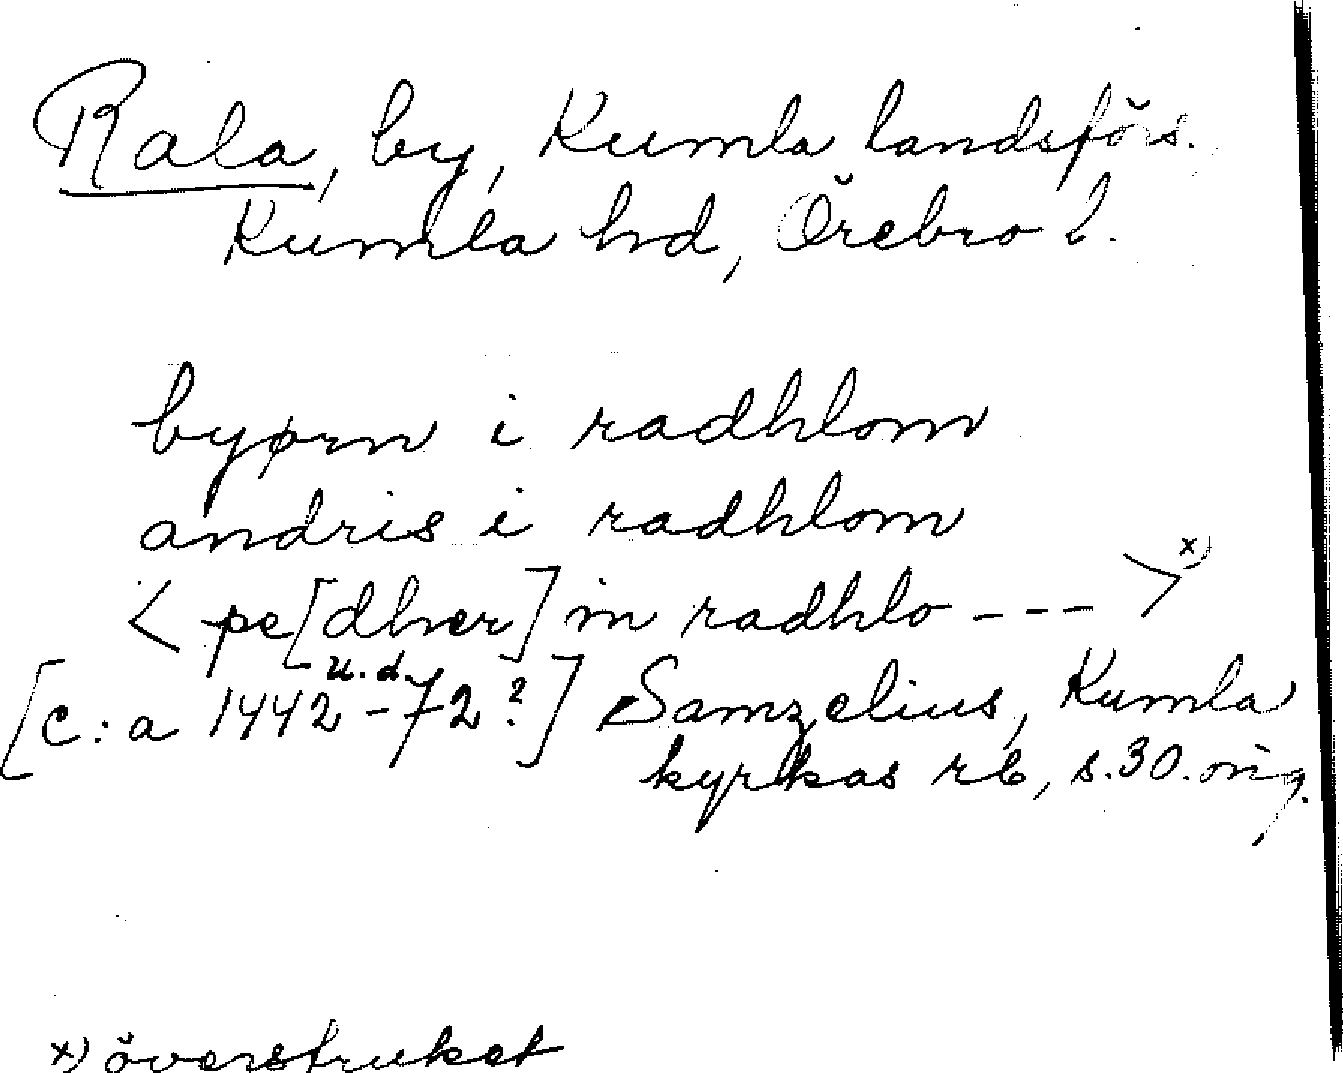 Rala, by, Kumla landsförs.
Kumla hd, Örebro l.
byørn i radhlom
andris i radhlom
< pe[dher] in radhlo --- > x)
u. d.
[c:a 1442-72?] Samzelius, Kumla
kyrkas rb, s. 30. orig.
x) överstruket